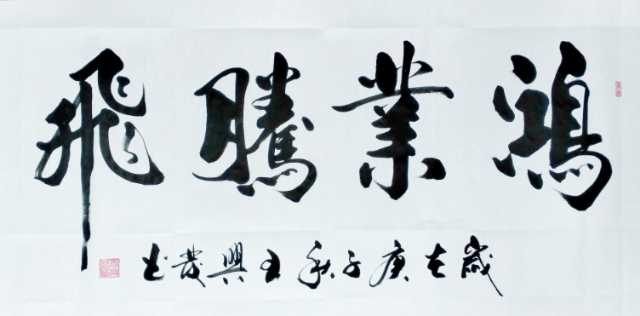 鴻業騰飛
歲在庚子秋王興發书